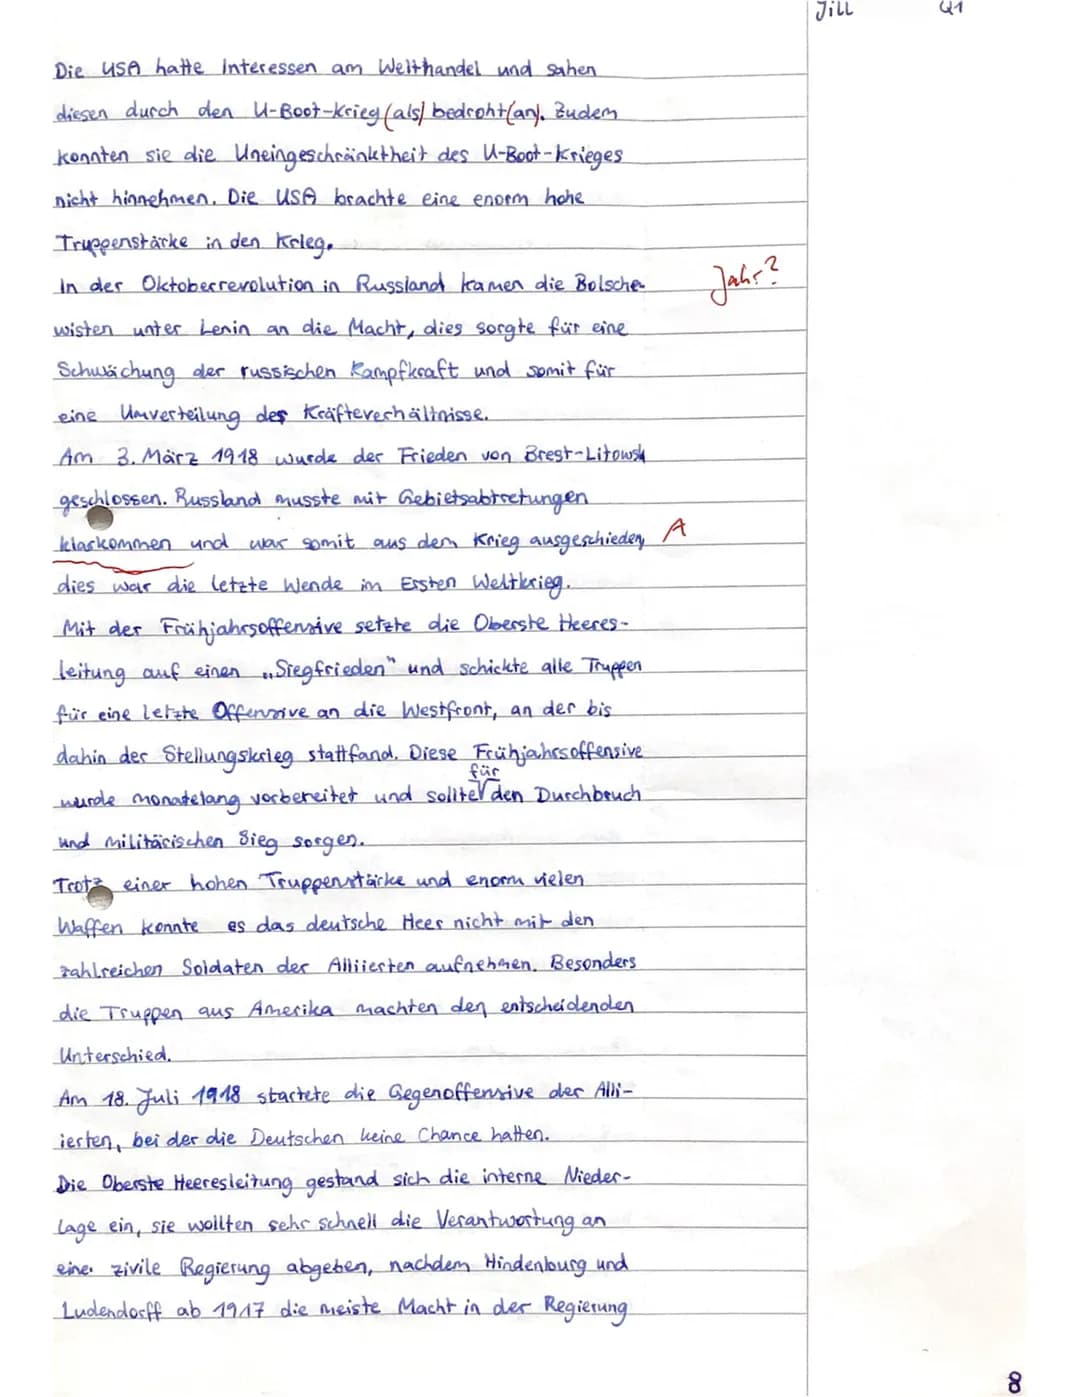 Jill Q1
Die USA hatte Interessen am Welthandel und sahen
diesen durch den U-Boot-Krieg (als) bedroht (an). Zudem
konnten sie die Uneingeschränktheit des U-Boot-Krieges
nicht hinnehmen. Die USA brachte eine enorm hohe
Truppenstärke in den Krieg.
In der Oktoberrevolution in Russland kamen die Bolsche- Jahr?
wisten unter Lenin an die Macht, dies sorgte für eine
Schwächung der russischen Kampfkraft und somit für
eine Umverteilung des Kräfteverhältnisse.
Am 3. März 1918 wurde der Frieden von Brest-Litowsk
geschlossen. Russland musste mit Gebietsabtretungen
klarkommen und war somit aus dem Krieg ausgeschieden, A
dies war die letzte Wende im Ersten Weltkrieg.
Mit der Frühjahrsoffensive setzte die Oberste Heeres-
leitung auf einen „Siegfrieden" und schickte alle Truppen
für eine letzte Offensive an die Westfront, an der bis
dahin der Stellungskrieg stattfand. Diese Frühjahrsoffensive
für
wurde monatelang vorbereitet und sollte den Durchbruch
und militärischen Sieg sorgen.
Trotz einer hohen Truppenstärke und enorm vielen
Waffen konnte es das deutsche Heer nicht mit den
zahlreichen Soldaten der Alliierten aufnehmen. Besonders
die Truppen aus Amerika machten den entscheidenden
Unterschied.
Am 18. Juli 1918 startete die Gegenoffensive der Alli-
ierten, bei der die Deutschen keine Chance hatten.
Die Oberste Heeresleitung gestand sich die interne Nieder-
lage ein, sie wollten sehr schnell die Verantwortung an
eine zivile Regierung abgeben, nachdem Hindenburg und
Ludendorff ab 1917 die meiste Macht in der Regierung
8